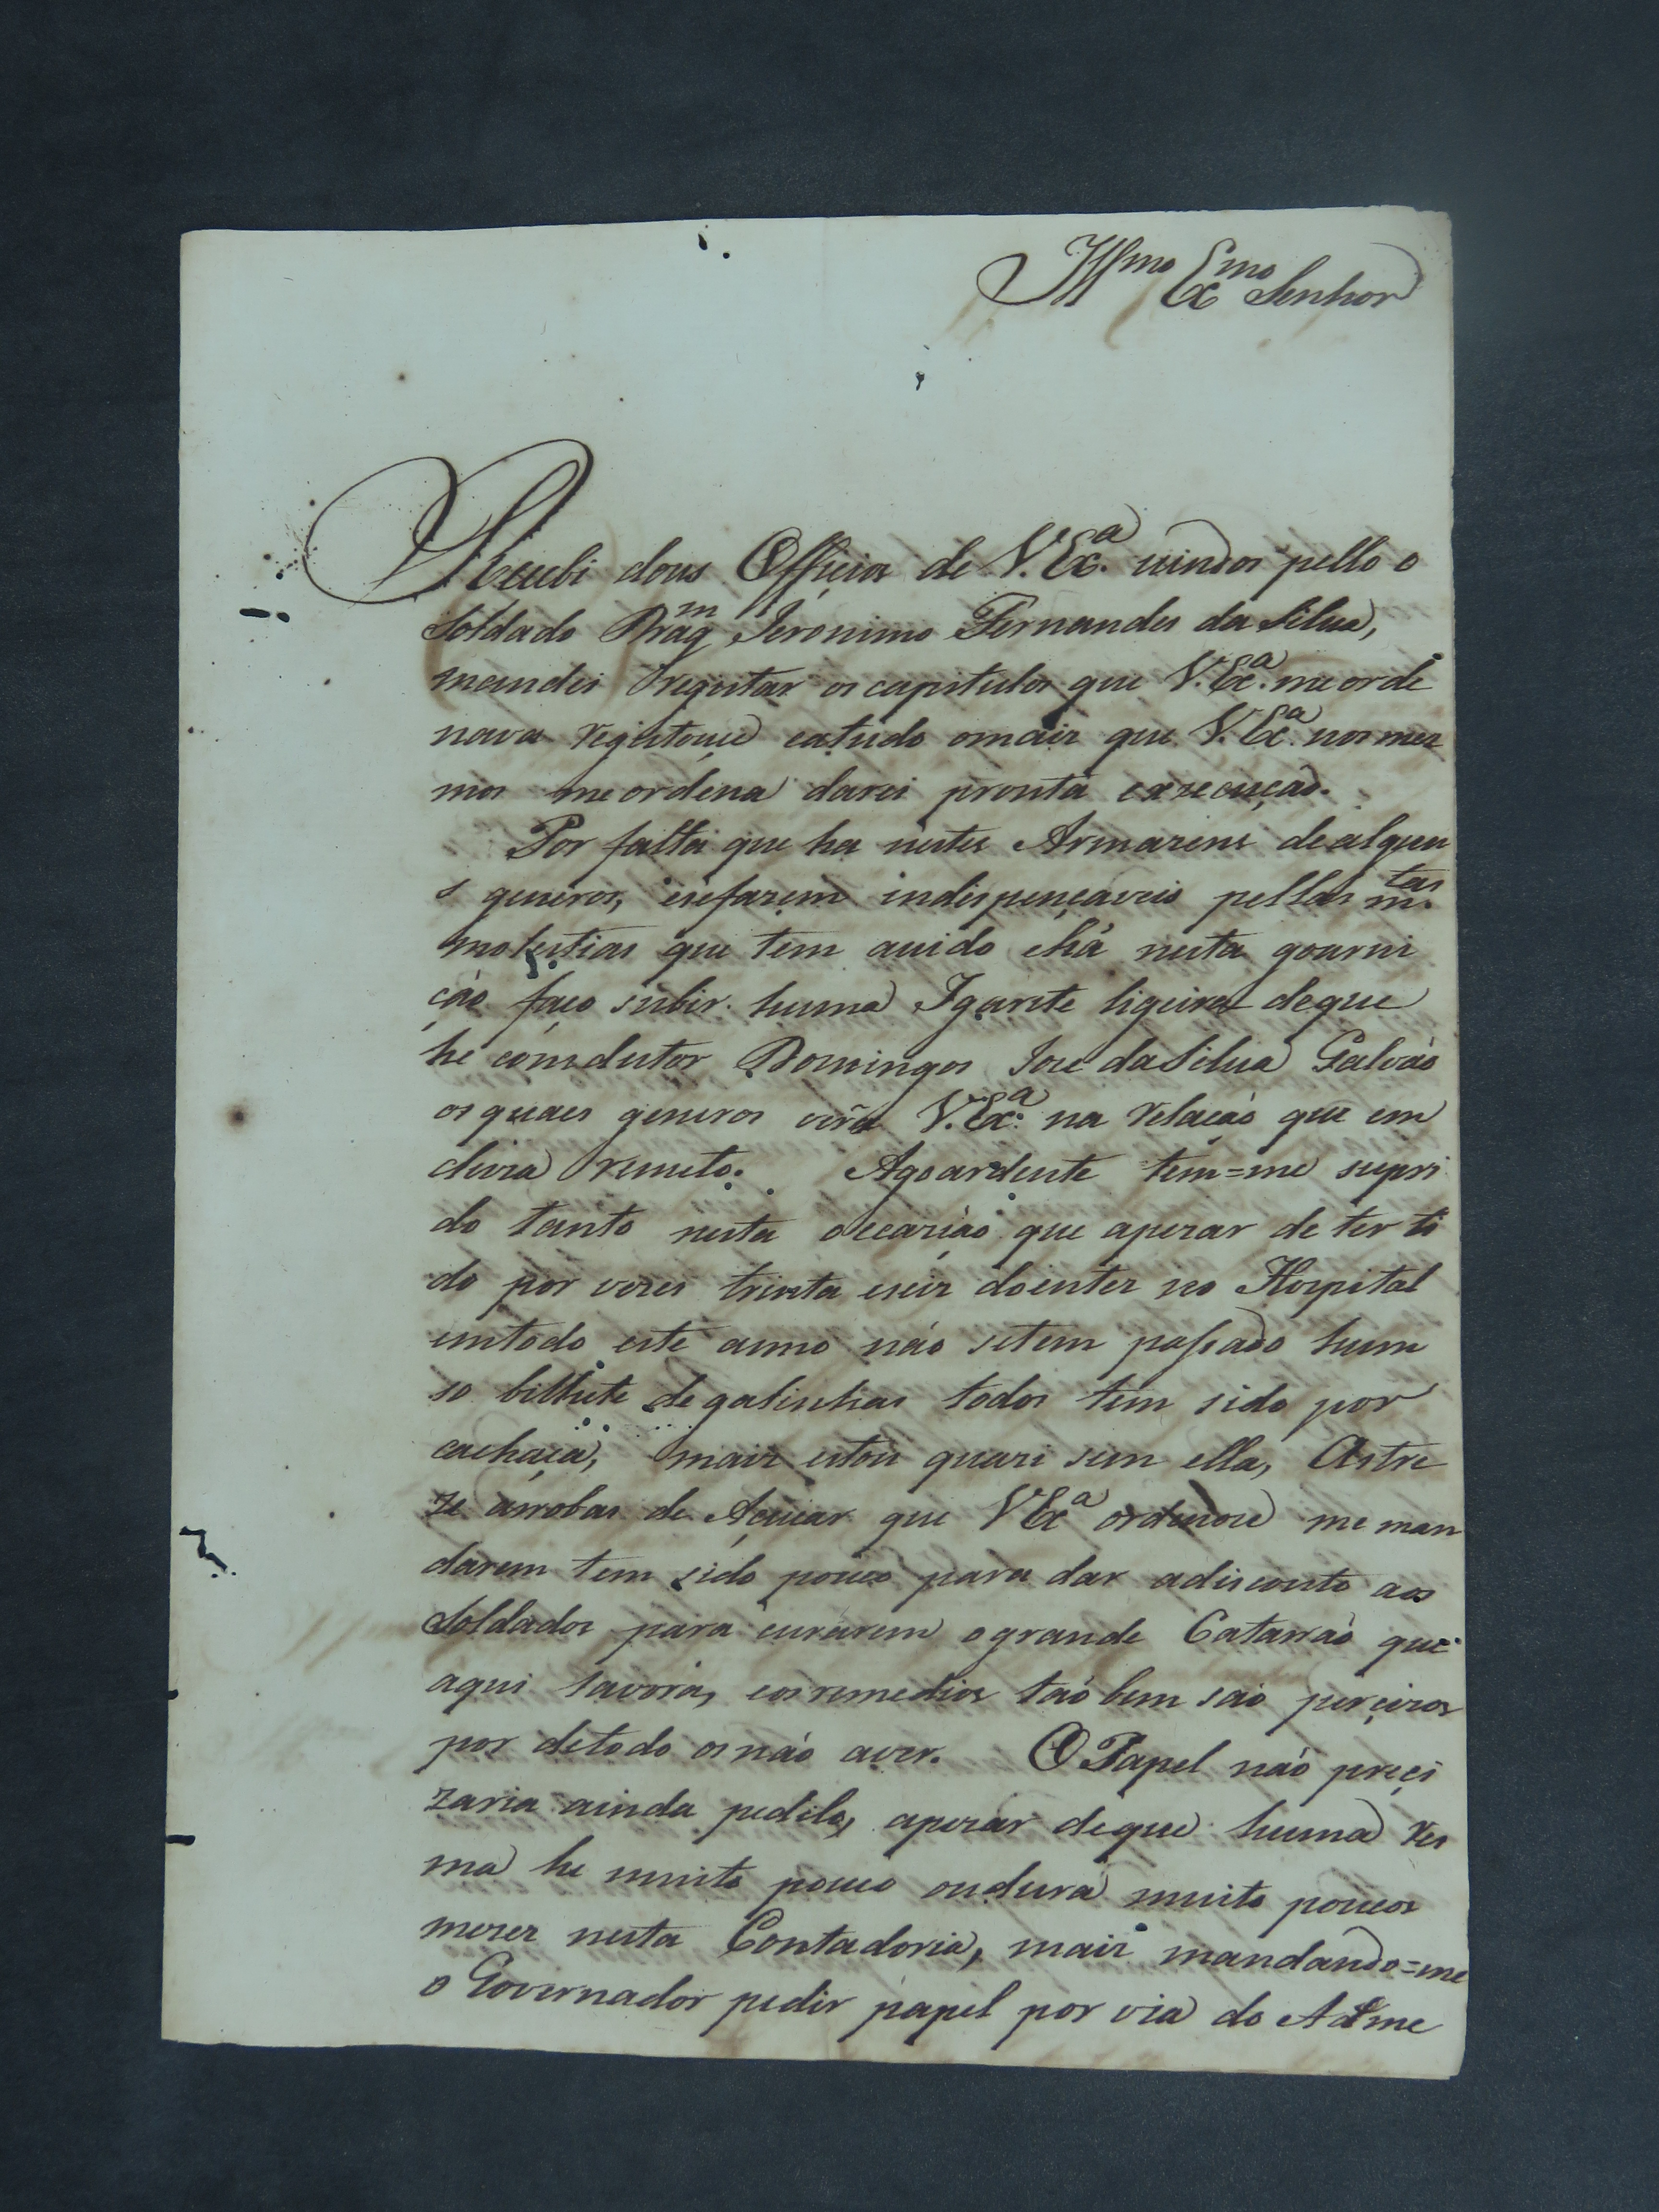 Illmo Exmo Senhor
Recebi dous Officios de V. Exa. vindos pello o
Soldado Dragm Jeronimo Fernandes da Silva,
mandei regıstar os capitulos que V. Exa. me orde
nava regıstouse eatudo omais que V. Exa. nos mes
mos me ordena darei pronta exsecução.
Por falta que ha nestes Armazens de algun
s generos, esefazem indispençaveis pellas mtas.
molestias que tem avido e há nesta goarni
ção faço subir huma Igarite ligeira deque
he comdutor Domingos Jose da Silva Galvão
os quaes generos verá V. Exa. na relação que em
cluza remeto. Agoardente tem=me supri
do tanto nesta occazião que apezar de ter ti
do por vezes trinta eseis doentes no Hospital
emtodo este anno não setem passado hum
so bilhete de galinhas todos tem sido por
cachaça, mais estou quazi sem ella, Astre
ze arrobas de Açucar que V Exa ordenou me man
darem tem sido pouco para dar adisconto aos
Soldados para curarem o grande Catarrão que
aqui lavora, eos remedios tão bem são perçizos
por detodo os não aver. O Papel não preçi
zaria ainda pedilo, apezar deque huma res
ma he muito pouco ou dura muito poucos
mezes nesta Contadoria, mais mandando=me
o Governador pedir papel por via do Adme